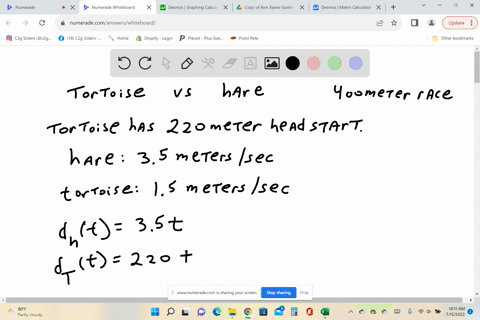 Numerade
Numerade Whiteboard
Desmos | Graphing Calcul
Copy of Ann Xavier Gantert
Desmos | Matrix Calculator
numerade.com/answers/whiteboard/
Update
C2g Sisters (@c2g...
(18) C2g Sisters - O...
Home
Shopify - Login
Placeit - Plux Size...
Pistol Pete
Other bookmarks
TORTOISE VS HARE 400 METER RACE
TORTOISE HAS 220 METER HEAD START.
HARE: 3.5 METERS/SEC
TORTOISE: 1.5 METERS/SEC
d_h(t) = 3.5t
d_T(t) = 220 +
www.numerade.com is sharing your screen.
Stop sharing
Hide
90°F
Partly cloudy
10:11 AM
7/15/2022